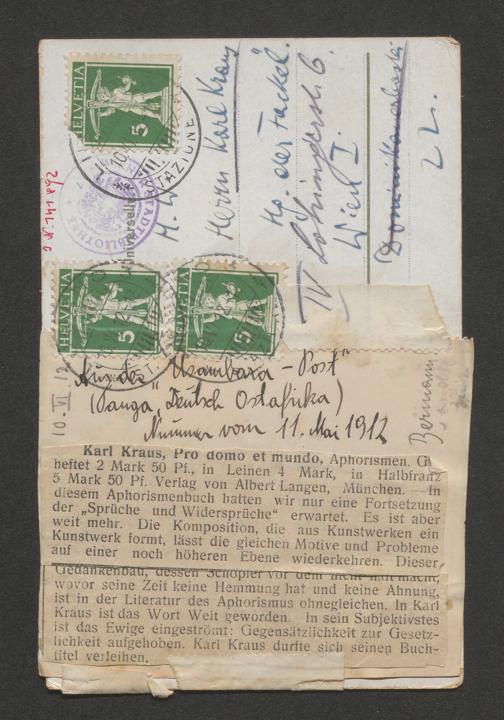 HELVETIA
5
STAZIONE
STADTBIBLIOTHEK
Universelle
J N. 141 892
H. W.
Herrn Karl Kraus
Hg. der Fackel.
IV Lothringerstr. 6.
Wien I.
HELVETIA
5
HELVETIA
5
10. VI 12
Aus der „Usambara-Post"
(Tanga, Deutsch Ostafrika)
Nummer vom 11. Mai 1912
Karl Kraus, Pro domo et mundo, Aphorismen. Ge-
heftet 2 Mark 50 Pf., in Leinen 4 Mark, in Halbfranz
5 Mark 50 Pf. Verlag von Albert Langen, München. — In
diesem Aphorismenbuch hatten wir nur eine Fortsetzung
der „Sprüche und Widersprüche" erwartet. Es ist aber
weit mehr. Die Komposition, die aus Kunstwerken ein
Kunstwerk formt, lässt die gleichen Motive und Probleme
auf einer noch höheren Ebene wiederkehren. Dieser
Gedankenbau, dessen Schöpfer vor dem nicht halt macht,
wovor seine Zeit keine Hemmung hat und keine Ahnung,
ist in der Literatur des Aphorismus ohnegleichen. In Karl
Kraus ist das Wort Welt geworden. In sein Subjektivstes
ist das Ewige eingeströmt: Gegensätzlichkeit zur Gesetz-
lichkeit aufgehoben. Karl Kraus durfte sich seinen Buch-
titel verleihen.